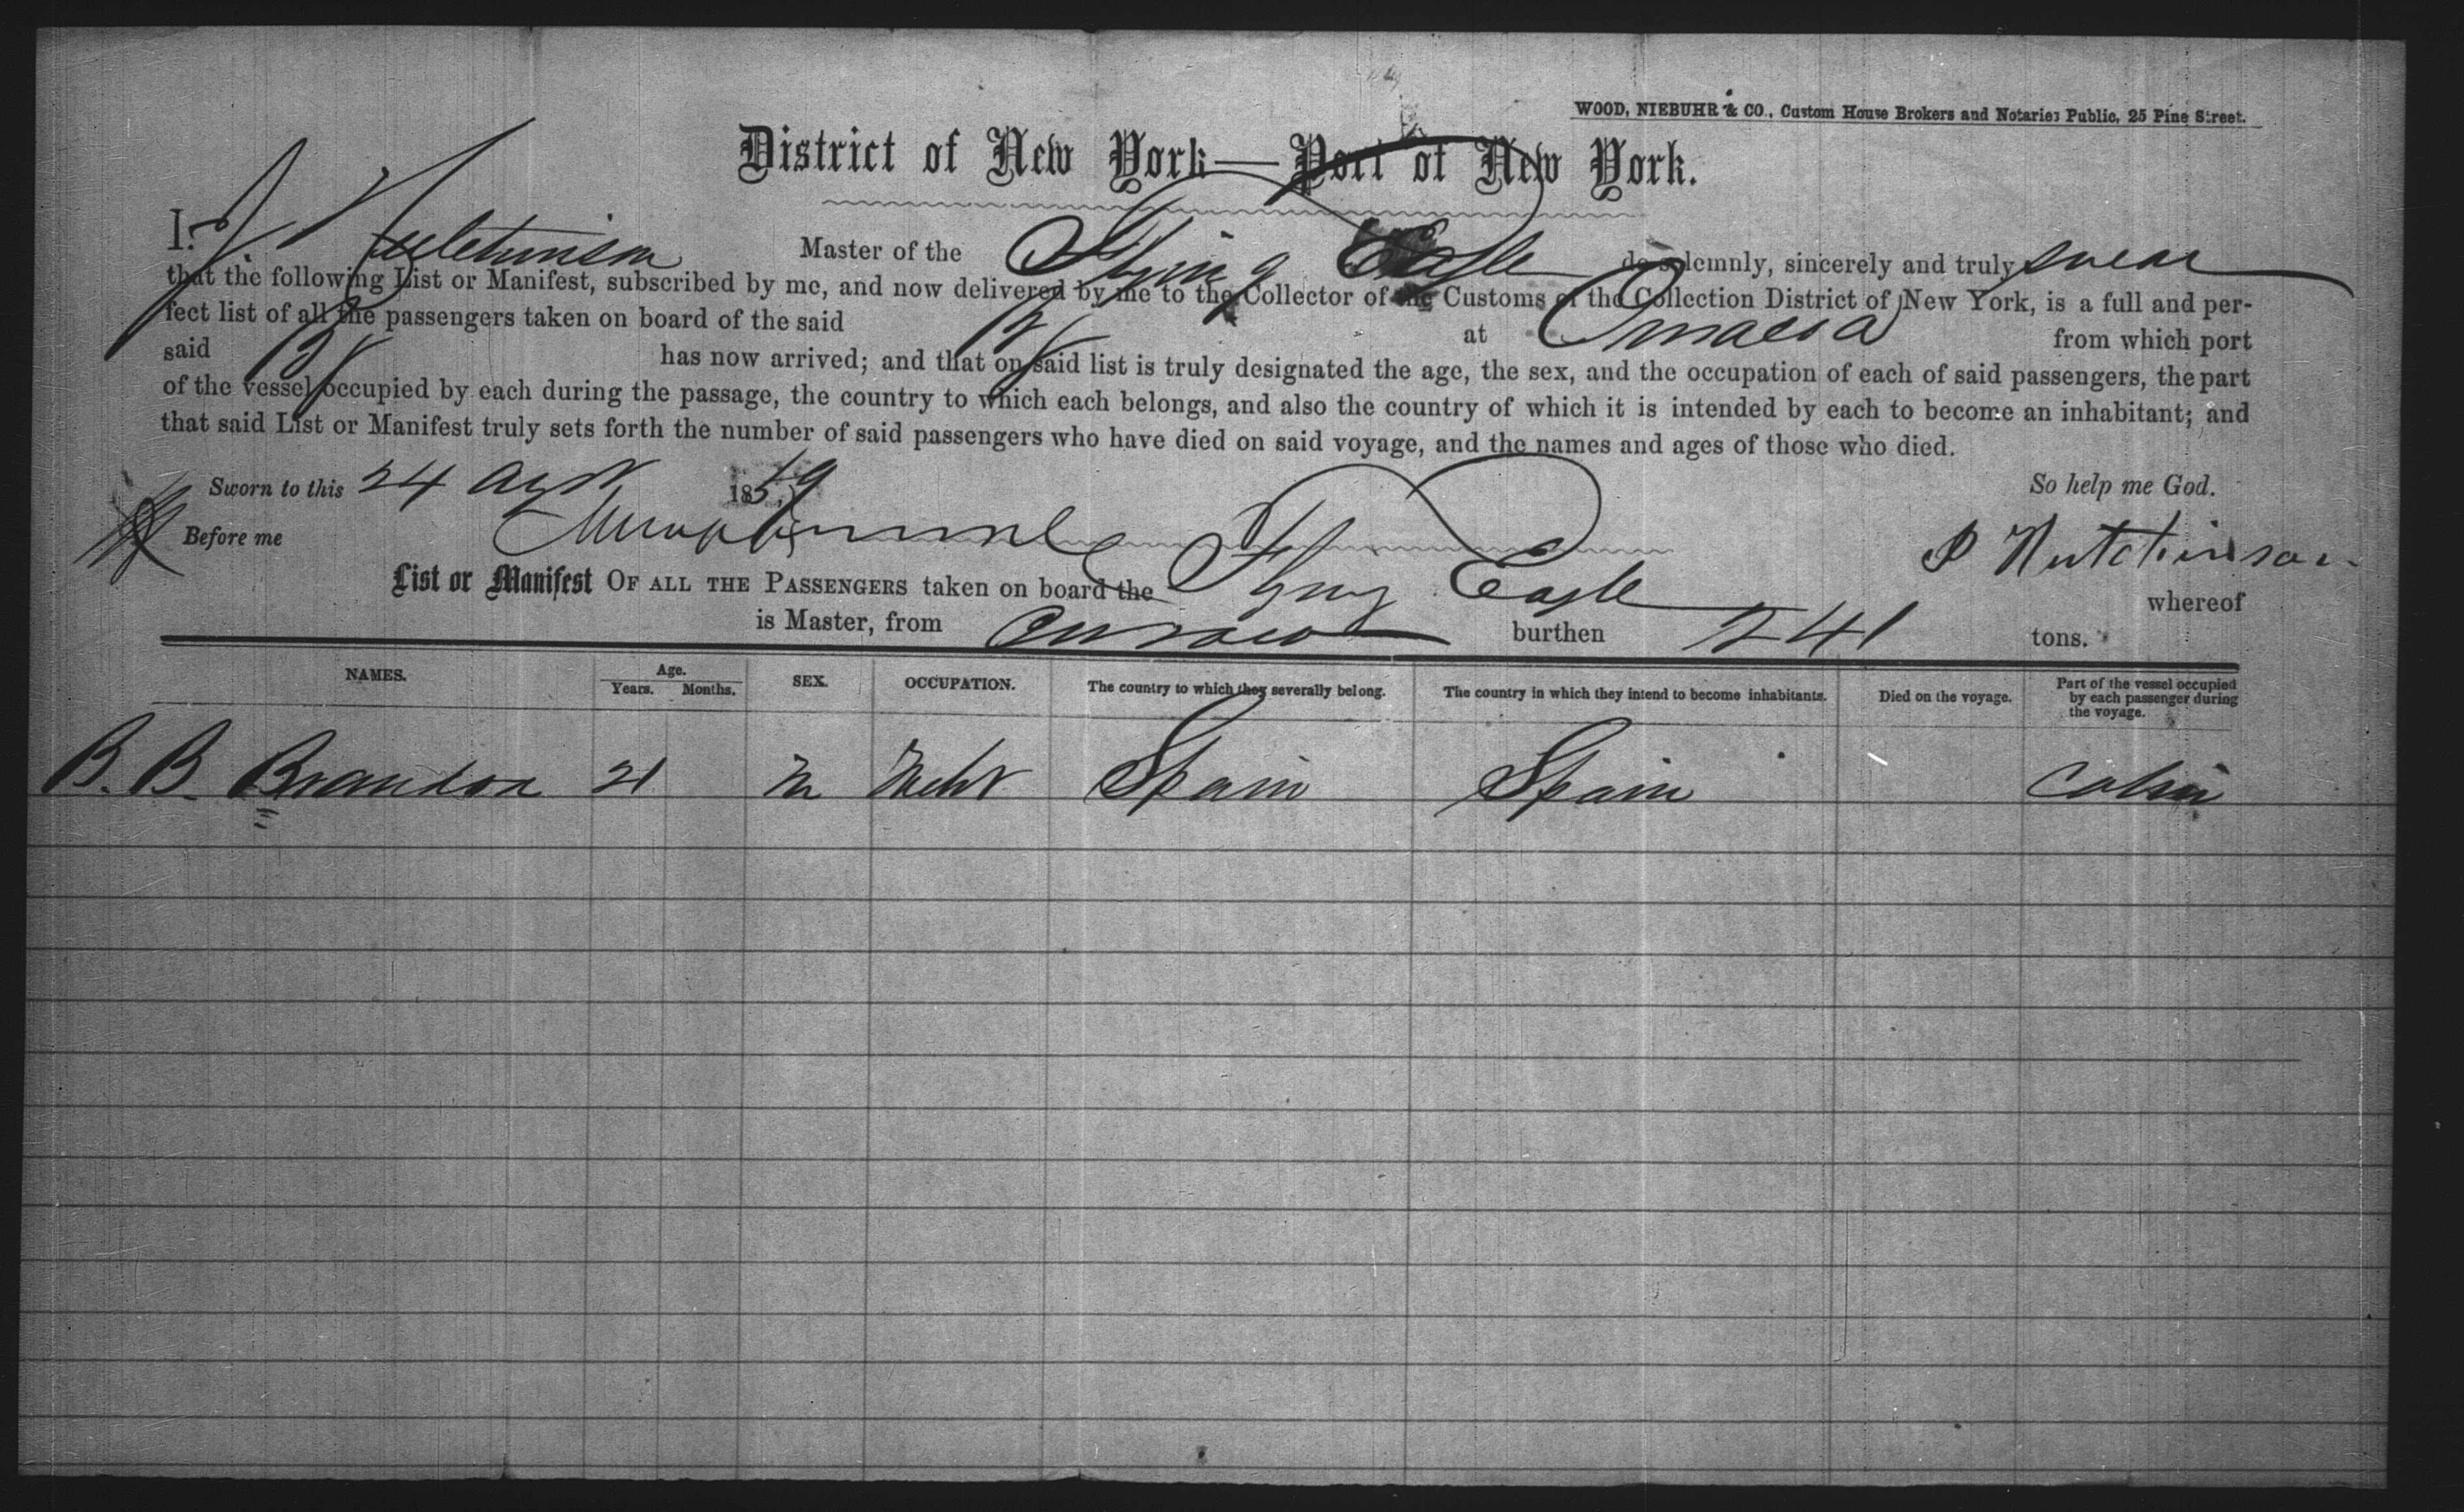 WOOD, NIEBUHR & CO., Custom House Brokers and Notaries Public, 25 Pine Street.
District of New York—Port of New York.
I, Hutchinson Master of the Flying Eagle do solemnly, sincerely and truly swear
that the following List or Manifest, subscribed by me, and now delivered by me to the Collector of the Customs of the Collection District of New York, is a full and per-
fect list of all the passengers taken on board of the said Bg at Curacoa from which port
said Bg has now arrived; and that on said list is truly designated the age, the sex, and the occupation of each of said passengers, the part
of the vessel occupied by each during the passage, the country to which each belongs, and also the country of which it is intended by each to become an inhabitant; and
that said List or Manifest truly sets forth the number of said passengers who have died on said voyage, and the names and ages of those who died.
Sworn to this 24 Augt 1859 So help me God.
Before me Hutchinson
List or Manifest OF ALL THE PASSENGERS taken on board the Flyng Eagle whereof
is Master, from Curacao burthen 241 tons.
NAMES. Age. Years. Months. SEX. OCCUPATION. The country to which they severally belong. The country in which they intend to become inhabitants. Died on the voyage. Part of the vessel occupied by each passenger during the voyage.
B. B. Brandon 21 M Mcht Spain Spain Cabin